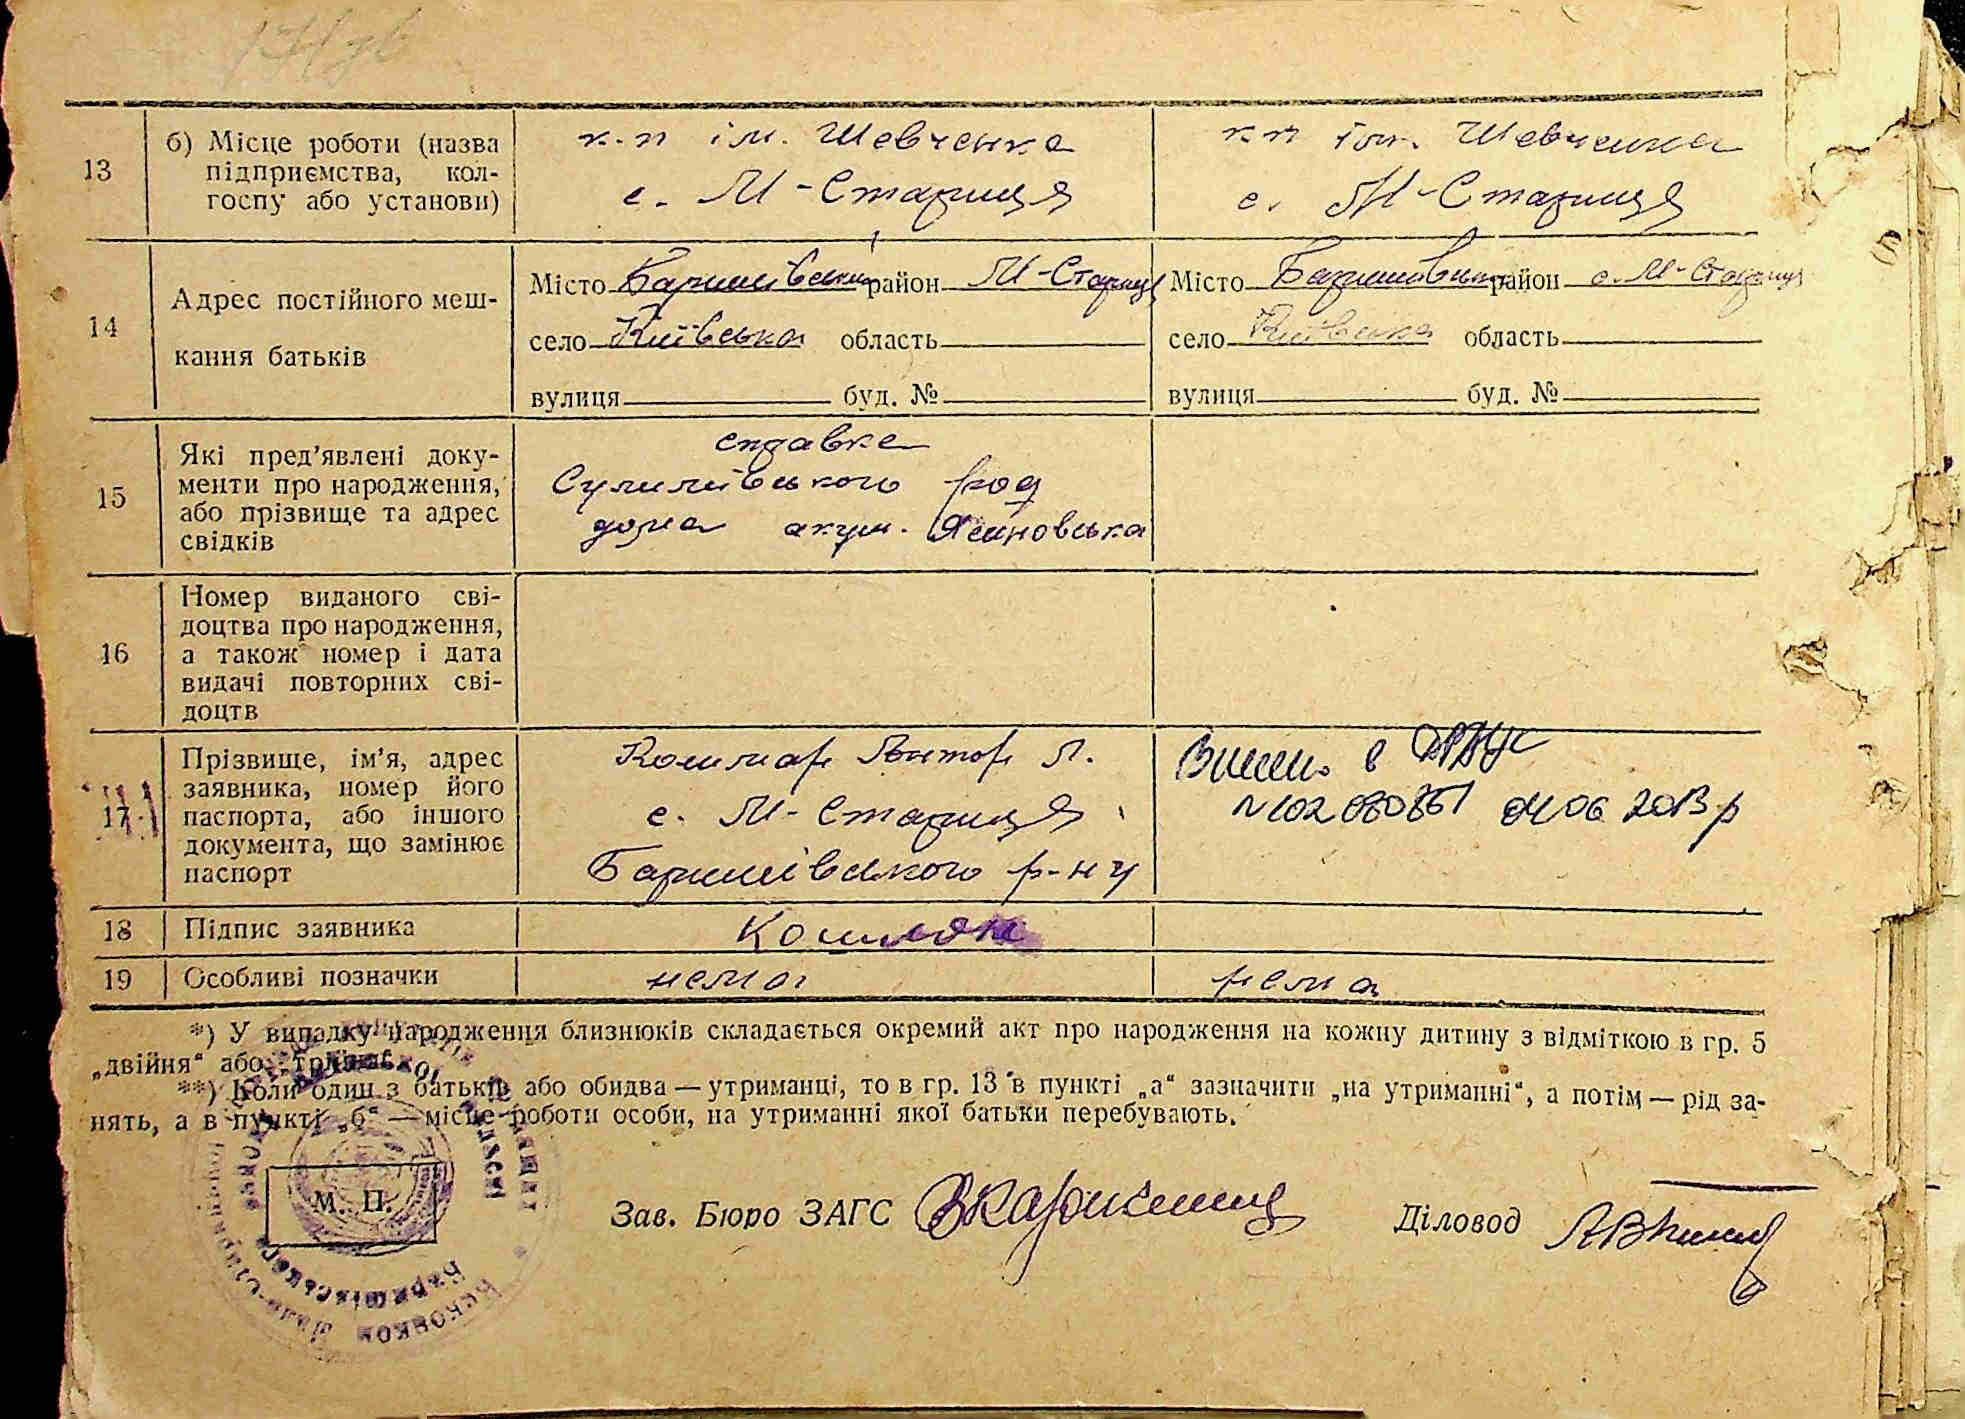 13
б) Місце роботи (назва
підприємства, кол-
госпу або установи)
к.п ім. Шевченка
с. М-Стариця
к.п ім. Шевченка
с. М-Стариця
14
Адрес постійного меш-
кання батьків
Місто Баришівський район М-Стариця
село Київська область
вулиця буд. №
Місто Баришівський район с. М-Стариця
село Київська область
вулиця буд. №
15
Які пред’явлені доку-
менти про народження,
або прізвище та адрес
свідків
справка
Сулимівського род
дома акуш. Ясиновська
16
Номер виданого сві-
доцтва про народження,
а також номер і дата
видачі повторних сві-
доцтв
17
Прізвище, ім’я, адрес
заявника, номер його
паспорта, або іншого
документа, що замінює
паспорт
Кошмар Віктор П.
с. М-Стариця
Баришівського р-ну
в ДРАЦС
04 06 2013 р
18
Підпис заявника
19
Особливі позначки
нема
нема
*) У випадку народження близнюків складається окремий акт про народження на кожну дитину з відміткою в гр. 5
„двійня“ або „трійня“.
**) Коли один з батьків або обидва — утриманці, то в гр. 13 в пункті „а“ зазначити „на утриманні“, а потім — рід за-
нять, а в пункті „б“ — місце роботи особи, на утриманні якої батьки перебувають.
М. П.
Зав. Бюро ЗАГС
Діловод